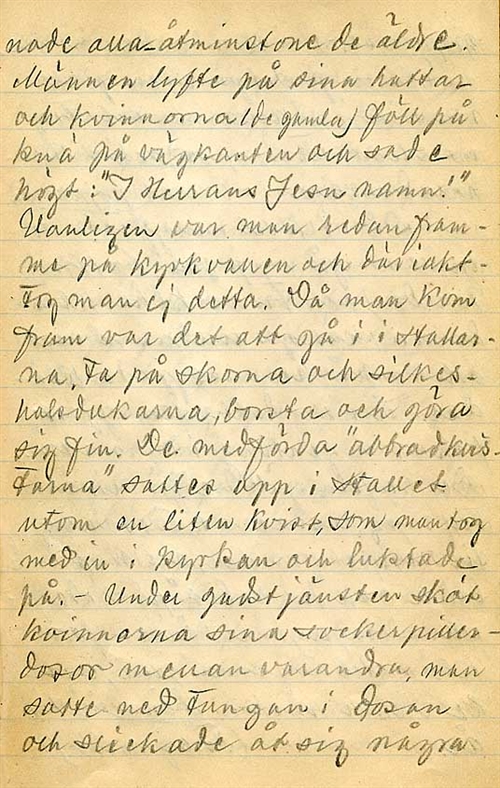 nade alla - åtminstone de äldre.
Männen lyfte på sina hattar
och kvinnorna (de gamla) föll på
knä på vägkanten och sade
högt: "I Herrans Jesu namn!"
Vanligen var man redan fram-
me på kyrkvallen och där iakt-
tog man ej detta. Då man kom
fram var det att gå i i stallar-
na, ta på skorna och silkes-
halsdukarna, borsta och göra
sig fin. De medförda "åbbradkvis-
tarna" sattes upp i stallet
utom en liten kvist, som man tog
med in i kyrkan och luktade
på. - Under gudstjänsten sköt
kvinnorna sina sockerpiller-
dosor mellan varandra, man
satte ned tungan i dosan
och slickade åt sig några